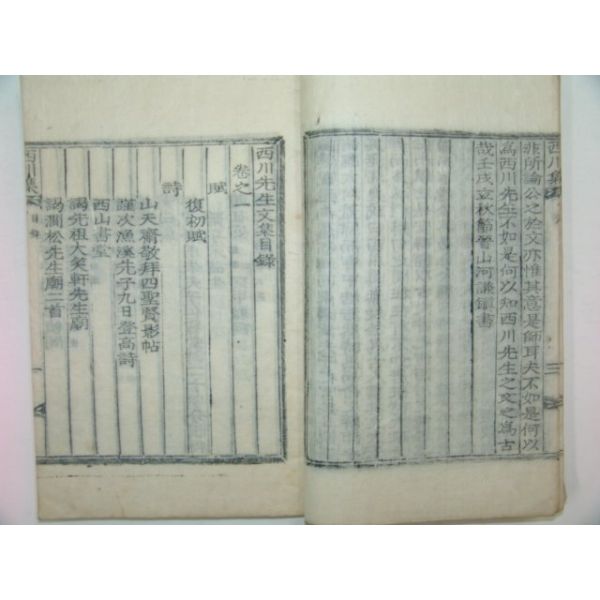 非所論公之於文亦惟其意是師耳夫不如是何以
為西川先生不如是何以知西川先生之文之為古
哉壬戌立秋節晉山河謙鎮書
西川集
三
西川先生文集目錄
卷之一
賦
復初賦
詩
山天齋敬拜四聖賢影帖
謹次漁溪先子九日登高詩
西山書堂
謁先祖大笑軒先生廟
謁澗松先生廟二首
西川集
目錄
一